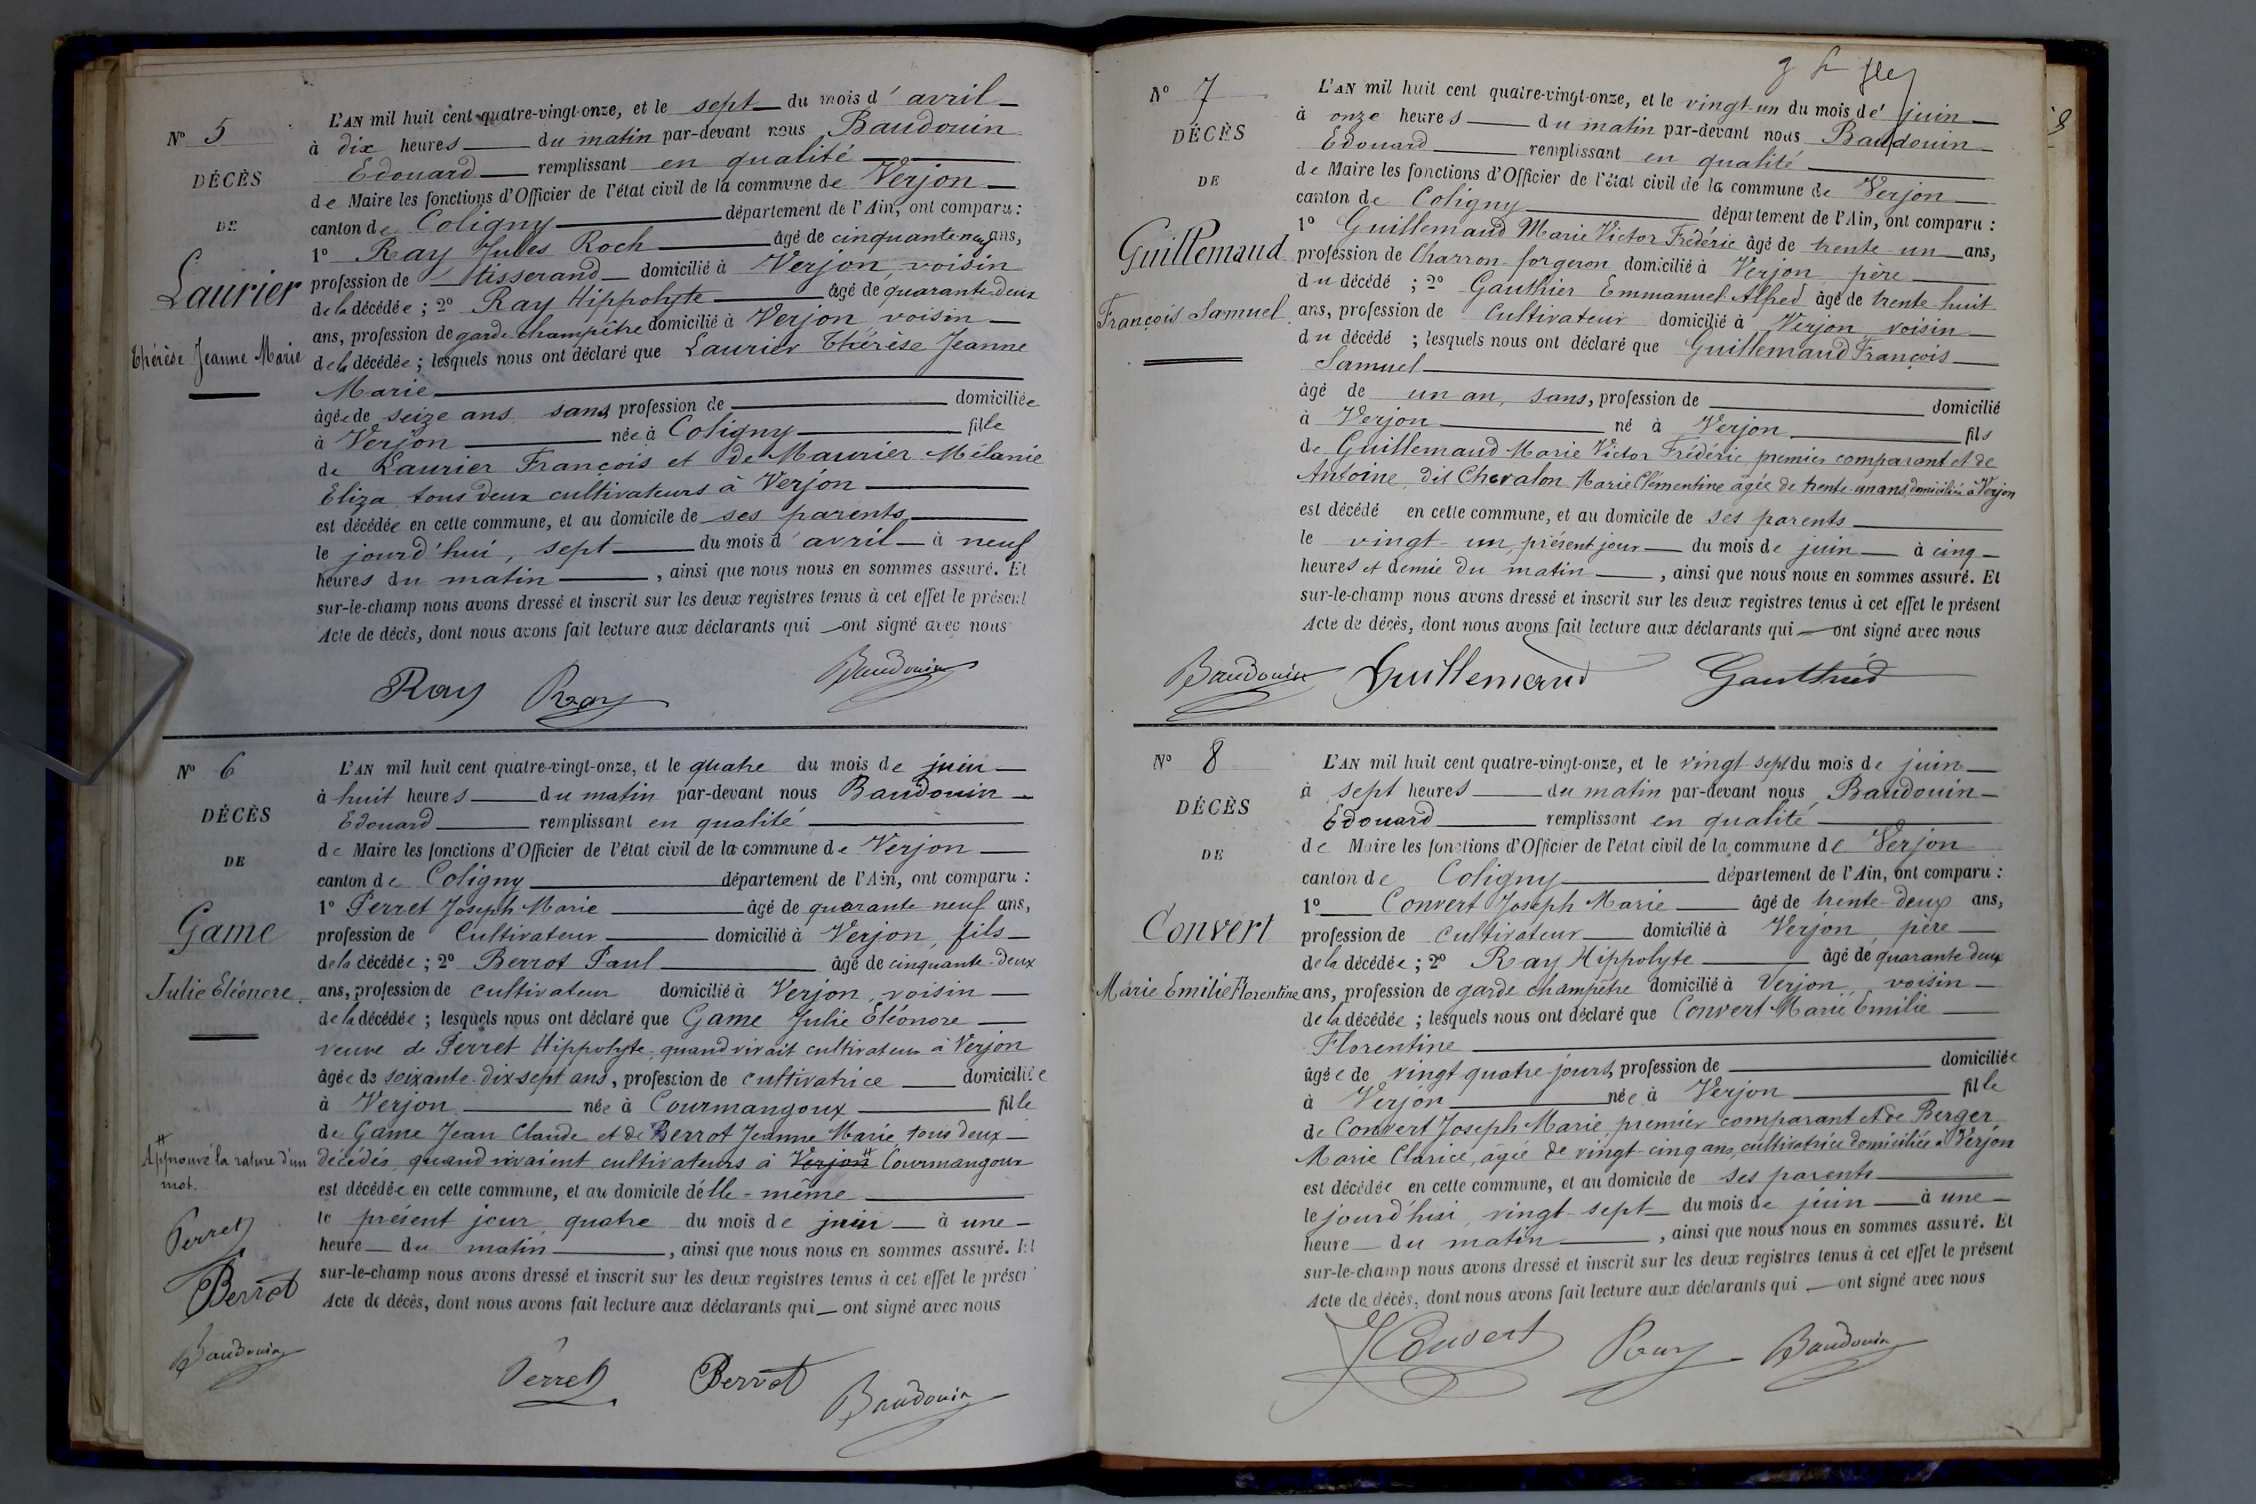 Nº 5
DÉCÈS
DE
Laurier
Thérèse Jeanne Marie
L'AN mil huit cent quatre-vingt-onze, et le sept du mois d'avril
à dix heures du matin par-devant nous Baudouin
Edouard remplissant en qualité
de Maire les fonctions d'Officier de l'état civil de la commune de Verjon
canton de Coligny département de l'Ain, ont comparu :
1º Ray Jules Roch âgé de cinquante neuf ans,
profession de tisserand domicilié à Verjon, voisin
de la décédée ; 2º Ray Hippolyte âgé de quarante-deux
ans, profession de garde champêtre domicilié à Verjon voisin
de la décédée ; lesquels nous ont déclaré que Laurier Thérèse Jeanne
Marie
âgée de seize ans sans profession de domiciliée
à Verjon née à Coligny fille
de Laurier François et de Maurier Mélanie
Eliza, tous deux cultivateurs à Verjon
est décédée en cette commune, et au domicile de ses parents
le jourd'hui, sept du mois d'avril à neuf
heures du matin, ainsi que nous nous en sommes assuré. Et
sur-le-champ nous avons dressé et inscrit sur les deux registres tenus à cet effet le présent
Acte de décès, dont nous avons fait lecture aux déclarants qui ont signé avec nous
Ray Ray Baudouin
Nº 6
DÉCÈS
DE
Game
Julie Eléonore
L'AN mil huit cent quatre-vingt-onze, et le quatre du mois de juin
à huit heures du matin par-devant nous Baudouin
Edouard remplissant en qualité
de Maire les fonctions d'Officier de l'état civil de la commune de Verjon
canton de Coligny département de l'Ain, ont comparu :
1º Perret Joseph Marie âgé de quarante neuf ans,
profession de Cultivateur domicilié à Verjon, fils
de la décédée ; 2º Berrot Paul âgé de cinquante-deux
ans, profession de cultivateur domicilié à Verjon, voisin
de la décédée ; lesquels nous ont déclaré que Game Julie Eléonore
veuve de Perret Hippolyte, quand vivait cultivateur à Verjon
âgée de soixante-dix-sept ans, profession de cultivatrice domiciliée
à Verjon née à Courmangoux fille
de Game Jean Claude et de Berrot Jeanne Marie, tous deux
décédés, quand vivaient cultivateurs à Verjon # Courmangoux
est décédée en cette commune, et au domicile d'elle-même
le présent jour quatre du mois de juin à une
heure du matin, ainsi que nous nous en sommes assuré. Et
sur-le-champ nous avons dressé et inscrit sur les deux registres tenus à cet effet le présent
Acte de décès, dont nous avons fait lecture aux déclarants qui ont signé avec nous
# Approuvé la rature d'un
mot.
Perret
Berrot
Baudouin
Perret Berrot Baudouin
Nº 7
DÉCÈS
DE
Guillemaud
François Samuel
L'AN mil huit cent quatre-vingt-onze, et le vingt-un du mois de juin
à onze heures du matin par-devant nous Baudouin
Edouard remplissant en qualité
de Maire les fonctions d'Officier de l'état civil de la commune de Verjon
canton de Coligny département de l'Ain, ont comparu :
1º Guillemaud Marie Victor Frédéric âgé de trente-un ans,
profession de Charron-forgeron domicilié à Verjon père
du décédé ; 2º Gauthier Emmanuel Alfred âgé de trente-huit
ans, profession de Cultivateur domicilié à Verjon voisin
du décédé ; lesquels nous ont déclaré que Guillemaud François
Samuel
âgé de un an, sans, profession de domicilié
à Verjon né à Verjon fils
de Guillemaud Marie Victor Frédéric premier comparant et de
Antoine dit Chevalon Marie Clémentine âgée de trente-un ans, domiciliée à Verjon
est décédé en cette commune, et au domicile de ses parents
le vingt-un, présent jour du mois de juin à cinq
heures et demie du matin, ainsi que nous nous en sommes assuré. Et
sur-le-champ nous avons dressé et inscrit sur les deux registres tenus à cet effet le présent
Acte de décès, dont nous avons fait lecture aux déclarants qui ont signé avec nous
Baudouin Guillemaud Gauthier
Nº 8
DÉCÈS
DE
Convert
Marie Emilie Florentine
L'AN mil huit cent quatre-vingt-onze, et le vingt-sept du mois de juin
à sept heures du matin par-devant nous Baudouin
Edouard remplissant en qualité
de Maire les fonctions d'Officier de l'état civil de la commune de Verjon
canton de Coligny département de l'Ain, ont comparu :
1º Convert Joseph Marie âgé de trente-deux ans,
profession de cultivateur domicilié à Verjon père
de la décédée ; 2º Ray Hippolyte âgé de quarante deux
ans, profession de garde champêtre domicilié à Verjon, voisin
de la décédée ; lesquels nous ont déclaré que Convert Marie Emilie
Florentine
âgée de vingt quatre jours, profession de domiciliée
à Verjon née à Verjon fille
de Convert Joseph Marie, premier comparant et de Berger
Marie Clarice, âgée de vingt-cinq ans, cultivatrice domiciliée à Verjon
est décédée en cette commune, et au domicile de ses parents
le jourd'hui, vingt-sept du mois de juin à une
heure du matin, ainsi que nous nous en sommes assuré. Et
sur-le-champ nous avons dressé et inscrit sur les deux registres tenus à cet effet le présent
Acte de décès, dont nous avons fait lecture aux déclarants qui ont signé avec nous
J Convert Ray Baudouin
8